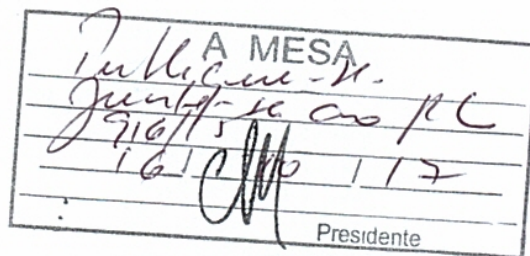 A MESA
Publique-se.
Junte-se ao PL
916/15
16/10/17
Presidente